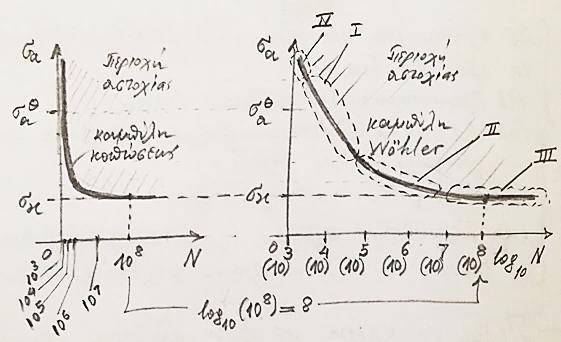 σα
Περιοχή
αστοχίας
σα^θ
καμπύλη
κοπώσεως
σκ
0
10^3
10^4
10^5
10^6
10^7
10^8
N
σα
IV
I
Περιοχή
αστοχίας
σα^θ
καμπύλη
Wöhler
II
III
σκ
0
3 4 5 6 7 8
(10) (10) (10) (10) (10) (10) log10 N
log10(10^8) = 8